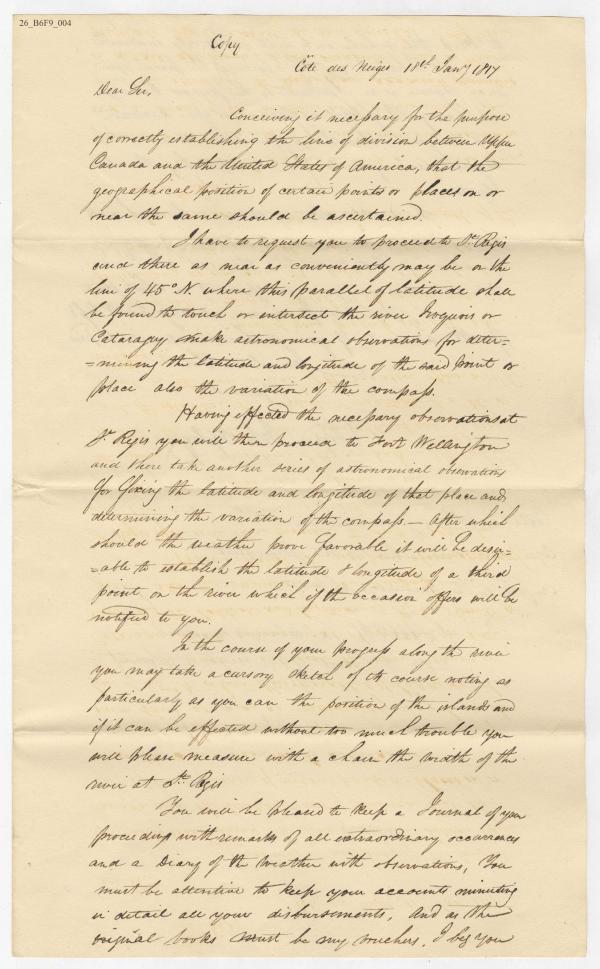 26_B6F9_004
Copy
Côte des Neiges 18th Jany 1817
Dear Sir,
Conceiving it necessary for the purpose
of correctly establishing the line of division between Upper
Canada and the United States of America, that the
geographical position of certain points or places on or
near the same should be ascertained.
I have to request you to proceed to St. Regis
and there as near as conveniently may be on the
line of 45° N. where this parallel of latitude shall
be found to touch or intersect the river Iroquois or
Cataraguy make astronomical observations for deter=
=mining the latitude and longitude of the said point or
place also the variation of the compass.
Having effected the necessary observations at
St. Regis you will then proceed to Fort Wellington
and there take another series of astronomical observations
for fixing the latitude and longitude of that place and
determining the variation of the compass — After which
should the weather prove favorable it will be desir=
=able to establish the latitude & longitude of a third
point on the river which if the occasion offers will be
notified to you.
In the course of your progress along the river
you may take a cursory sketch of its course noting as
particularly as you can the position of the islands and
if it can be effected without too much trouble you
will please measure with a chain the width of the
river at St. Regis
You will be pleased to keep a Journal of your
proceedings with remarks of all extraordinary occurrences
and a Diary of the Weather with observations, You
must be attentive to keep your accounts minuting
in detail all your disbursements, And as the
original books must be my vouchers, I beg you